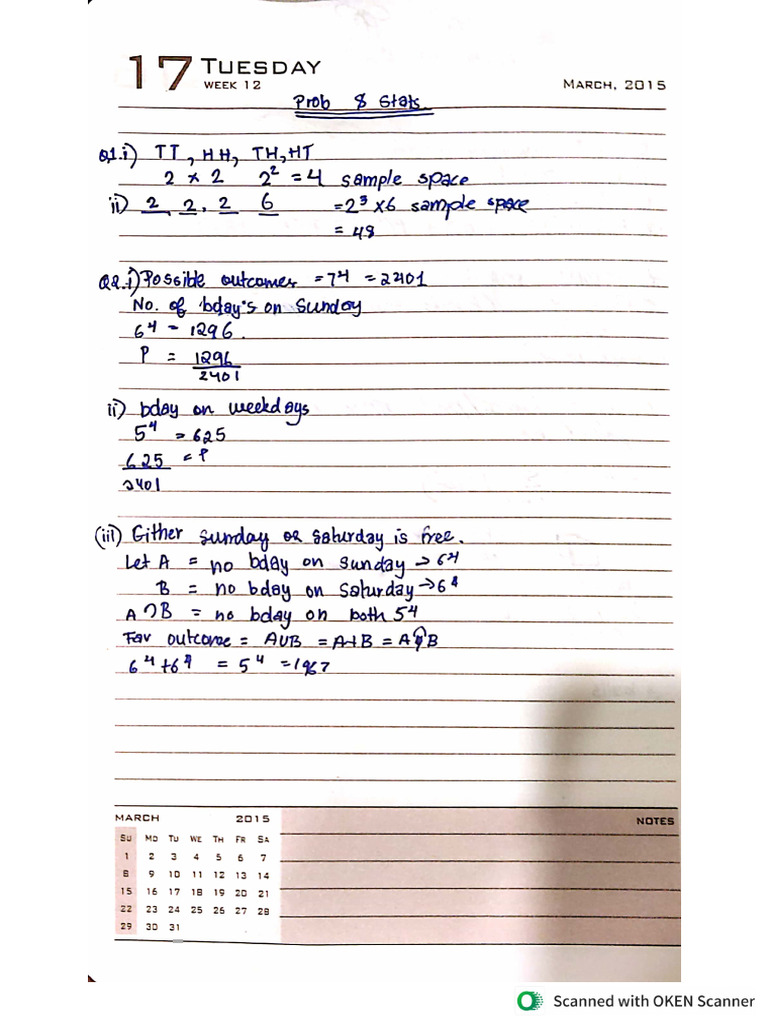 17 TUESDAY
WEEK 12
MARCH, 2015
Prob & Stats
Q1.i) TT, HH, TH, HT
2 × 2 2² = 4 sample space
ii) 2 2, 2 6 = 2³ × 6 sample space
= 48
Q2.i) Possible outcomes = 7⁴ = 2401
No. of bday's on Sunday
6⁴ = 1296.
P = 1296
2401
ii) bday on weekdays
5⁴ = 625
625 = P
2401
(iii) Either sunday or saturday is free.
Let A = no bday on sunday → 6⁴
B = no bday on saturday → 6⁴
A ∩ B = no bday on both 5⁴
Fav outcome = A∪B = A+B = A∩B
6⁴ + 6⁴ = 5⁴ = 1967
MARCH 2015
SU MO TU WE TH FR SA
1 2 3 4 5 6 7
8 9 10 11 12 13 14
15 16 17 18 19 20 21
22 23 24 25 26 27 28
29 30 31
NOTES
Scanned with OKEN Scanner